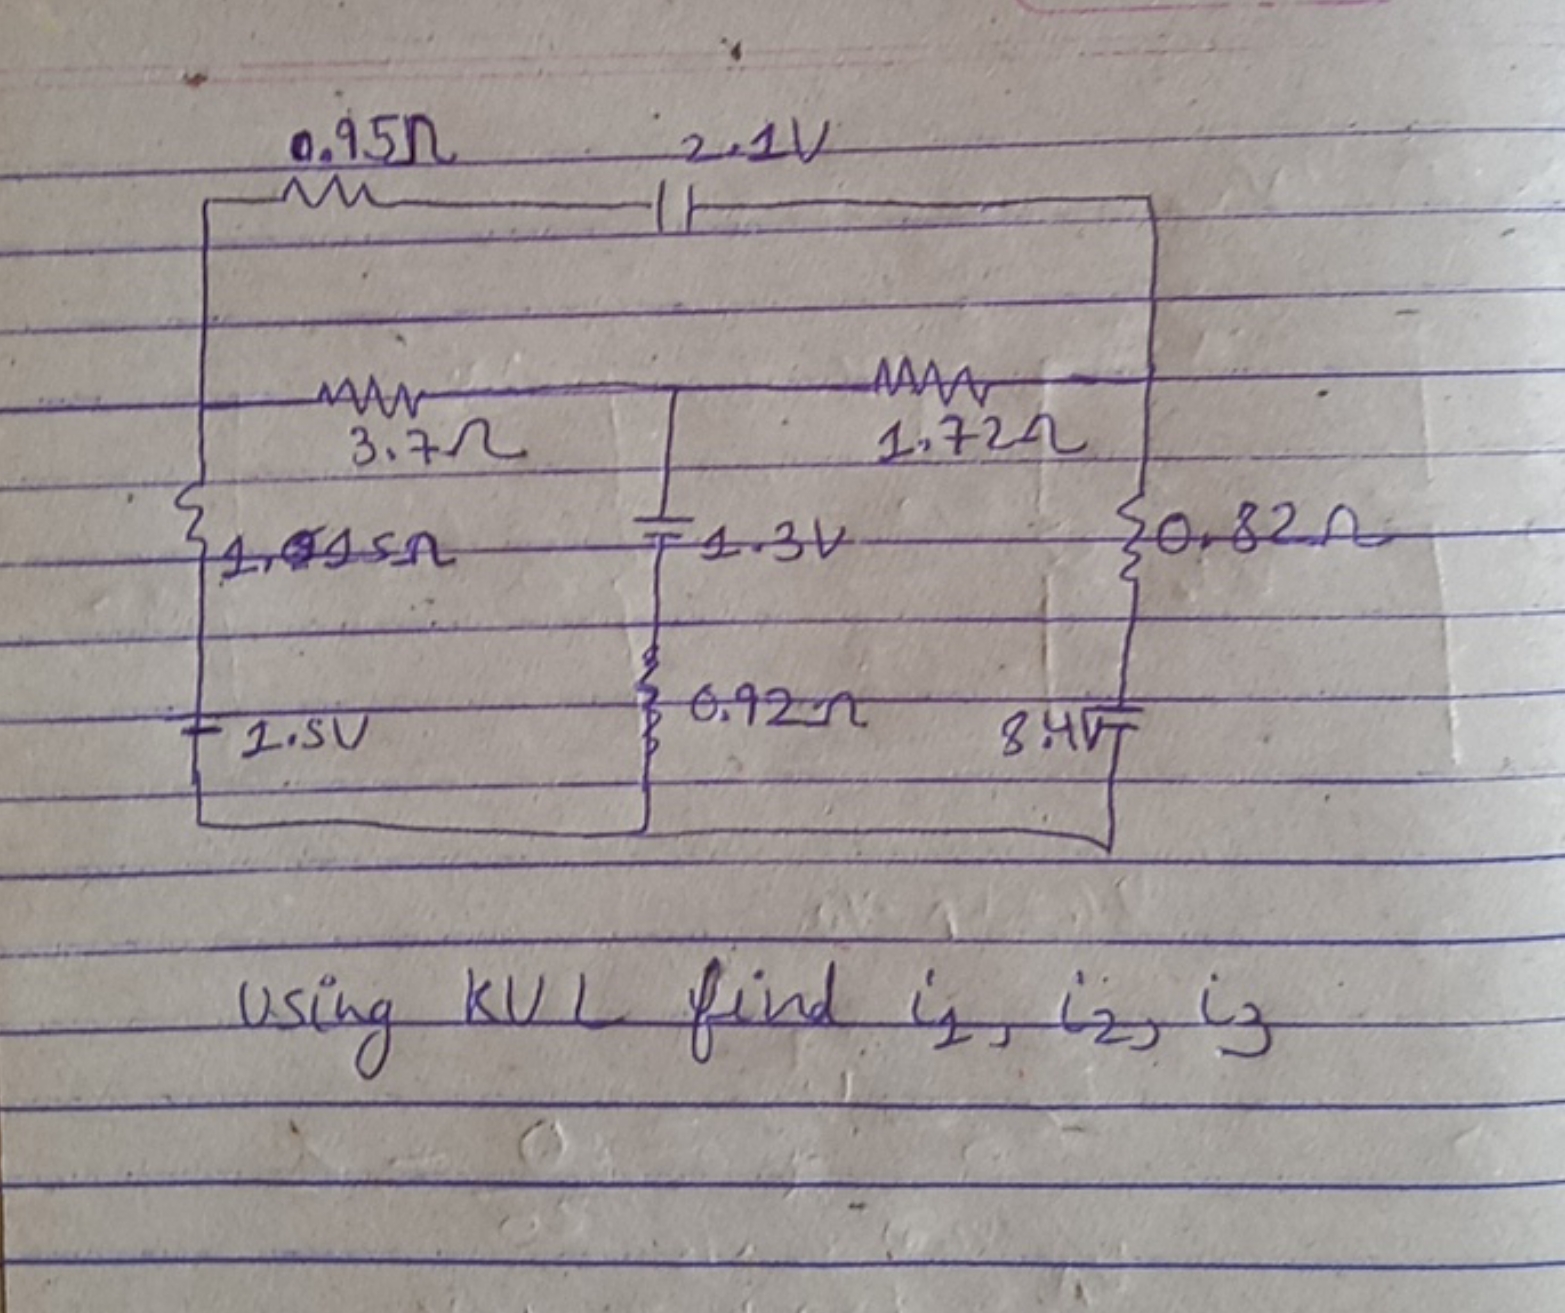 0.95Ω 2.1V
3.7Ω 1.72Ω
1.015Ω 1.3V 0.82Ω
1.5V 0.92Ω 8.4V
Using KVL find i1, i2, i3